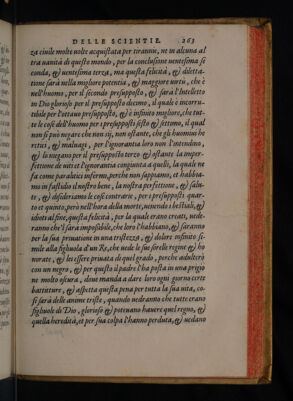 DELLE SCIENTIE. 263
za ciuile molte uolte acquistata per tiranne, ne in alcuna al
tra uanità di questo mondo, per la conclusione uentesima se
conda, & uentesima terza, ma questa felicità, & diletta-
tione sarà nella migliore potentia, & maggiore uertù, che è
nell'huomo, per il secondo presupposto, & sarà l'intelletto
in Dio glorioso per il presupposto decimo, il quale è incorru-
tibile per l'ottauo presupposto, & è infinito migliore, che tut-
te le cose dell'huomo per i presupposti sesto & settimo, il qual
non si può negare che non sij, non ostante, che gli huomini he
retici, & maluagi, per l'ignorantia loro non l'intendino,
& lo negano per il presupposto terzo & ostante la imper-
fettione de uitij et l'ignorantia congiunta a quelli, la quale ne
fa come paralitici infermi, perche non sappiamo, et habbia-
mo in fastidio il nostro bene, la nostra perfettione, & salu-
te, & desideriamo le cose contrarie, per i presupposti quar-
to et quinto, però nell'hora della morte, uenendo i bestiali, &
idioti al fine, questa felicità, per la quale erano creati, uede-
ranno che'l sarà impossibile, che loro l'habbiano, & saranno
per la sua priuatione in una tristezza, & dolore infinito si-
mile alla figliuola d'un Re, che uede le sue sorelle regine & ho
norate, & lei essere priuata di quel grado, perche adulterò
con un negro, & per questo il padre l'ha posta in una prigio
ne molto oscura, doue manda a dare loro ogni giorno certe
battiture, & aspetta questa pena per tutta la sua uita, co-
si sarà delle anime triste, quando uederanno che tutte erano
figliuole di Dio, glorioso & poteuano hauere quel regno, &
quella heredità, et per sua colpa l'hanno perduta, & uedano